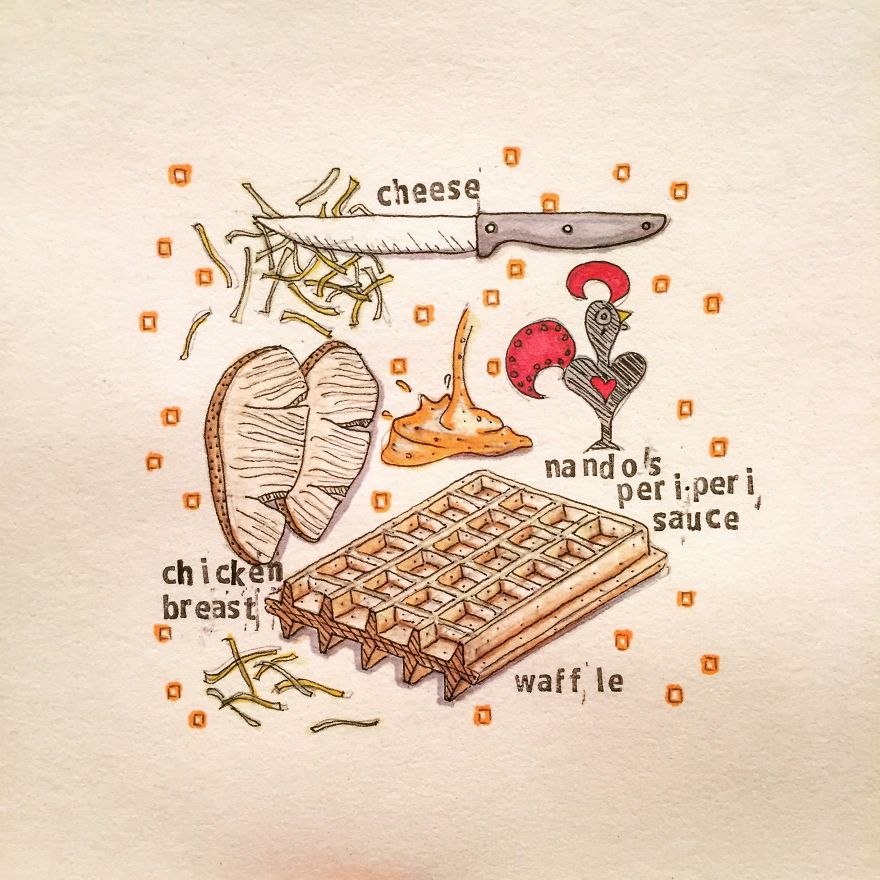 cheese
nando's
peri.peri
sauce
chicken
breast
waffle